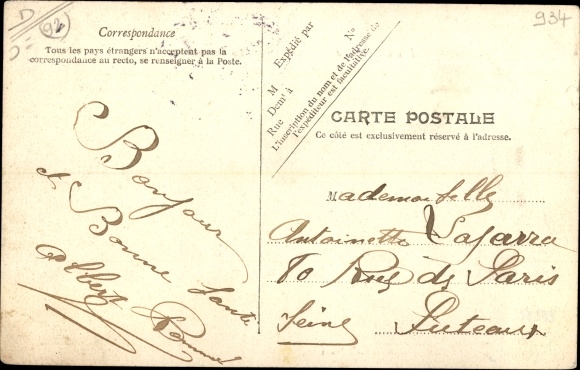 D
92
934
Correspondance
Tous les pays étrangers n'acceptent pas la
correspondance au recto, se renseigner à la Poste.
Expédié par
M
Demt à
Rue
No
L'inscription du nom et de l'adresse de
l'expéditeur est facultative.
CARTE POSTALE
Ce côté est exclusivement réservé à l'adresse.
Bonjour
et Bonne Santé
Albert
Mademoiselle
Antoinette
70 Rue de Paris
Seine Puteaux